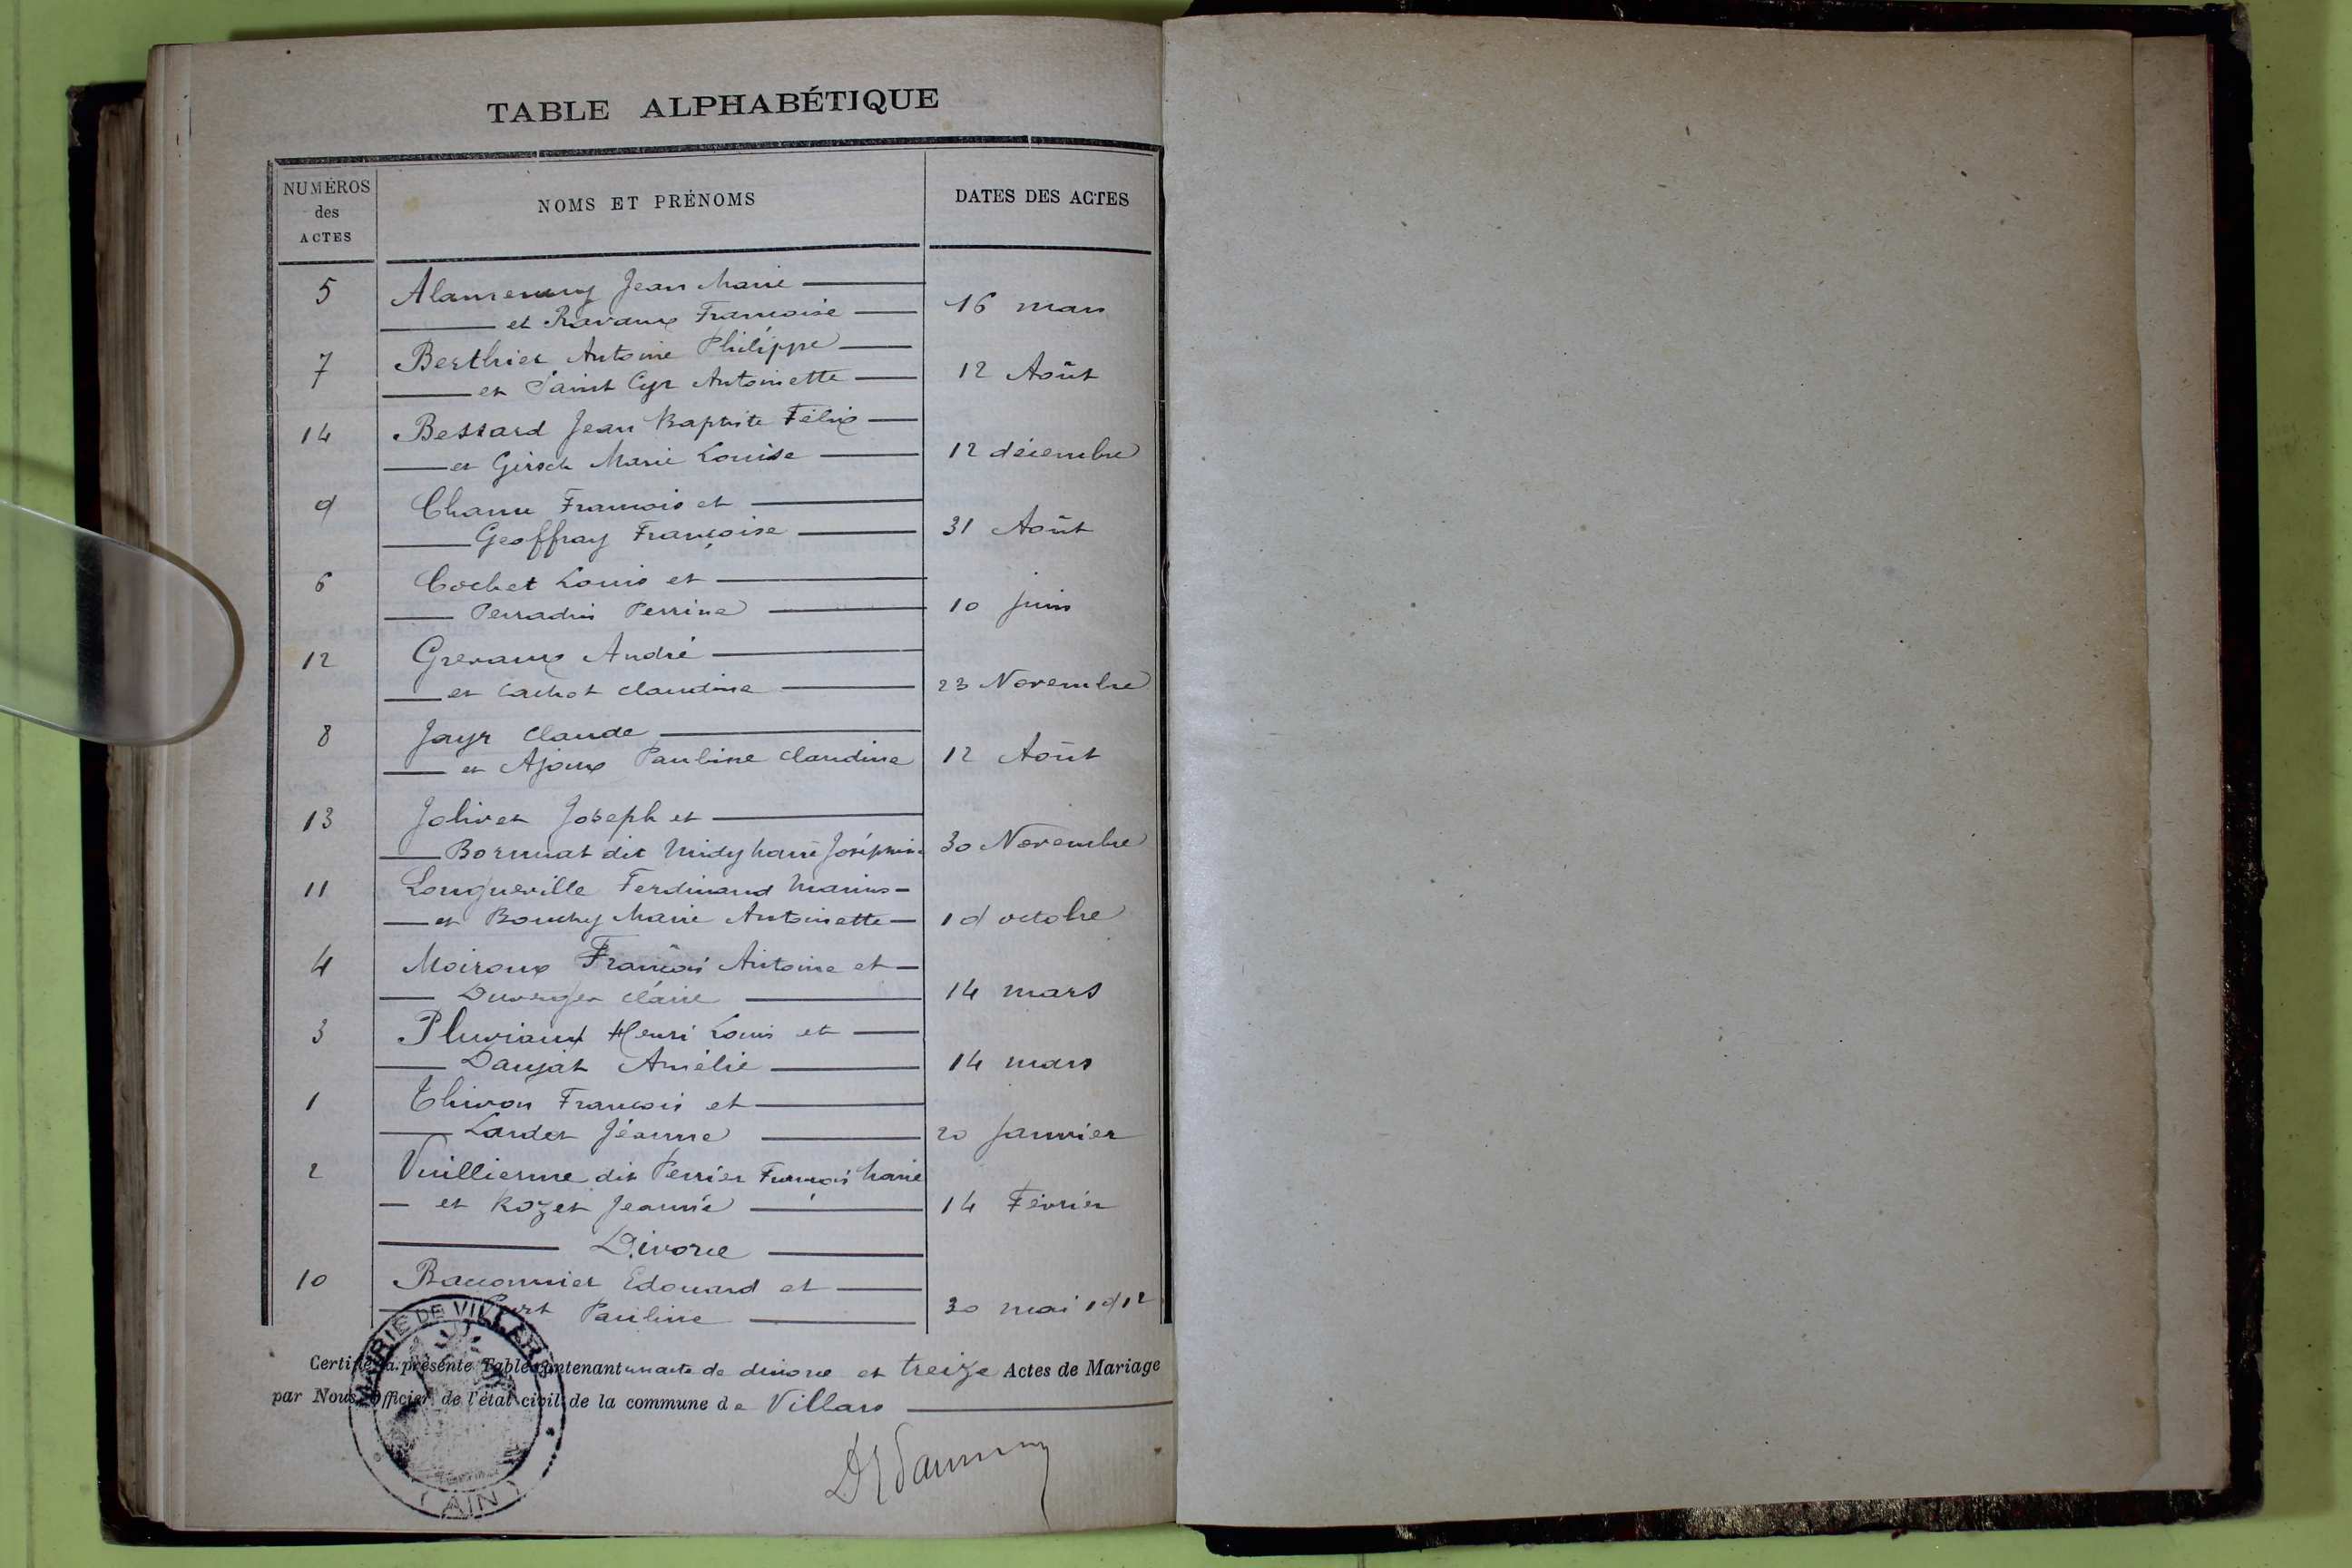 TABLE ALPHABÉTIQUE
NUMÉROS des ACTES NOMS ET PRÉNOMS DATES DES ACTES
5 Jean Marie
et Ravaux Francoise 16 mars
7 Berthier Antoine Philippe
et Saint Cyr Antoinette 12 Août
14 Bessard Jean Baptiste Félix
et Girsch Marie Louise 12 décembre
9 Chanu Francois et
Geoffray Françoise 31 Août
6 Cochet Louis et
Perradin Perrine 10 juin
12 Grevaux André
et Cachot Claudine 23 Novembre
8 Jayr Claude
et Ajoux Pauline Claudine 12 Août
13 Jolivet Joseph et
dit Marie Joséphine 30 Novembre
11 Longueville Ferdinand Marius
et Bouchy Marie Antoinette 19 octobre
4 Moiroux François Antoine et
Duverger Claire 14 mars
3 Pluviaux Henri Louis et
Daujat Amélie 14 mars
1 Thivon Francois et
Lardet Jeanne 20 Janvier
2 Vuillierme dit Perrier François Marie
et Rozet Jeanne 14 Février
Divorce
10 Baconnier Edouard et
Pauline 30 mai 1912
Certifié la présente Table contenant un acte de divorce et treize Actes de Mariage
par Nous, Officier de l'état civil de la commune de Villars
MAIRIE DE VILLARS
(AIN)